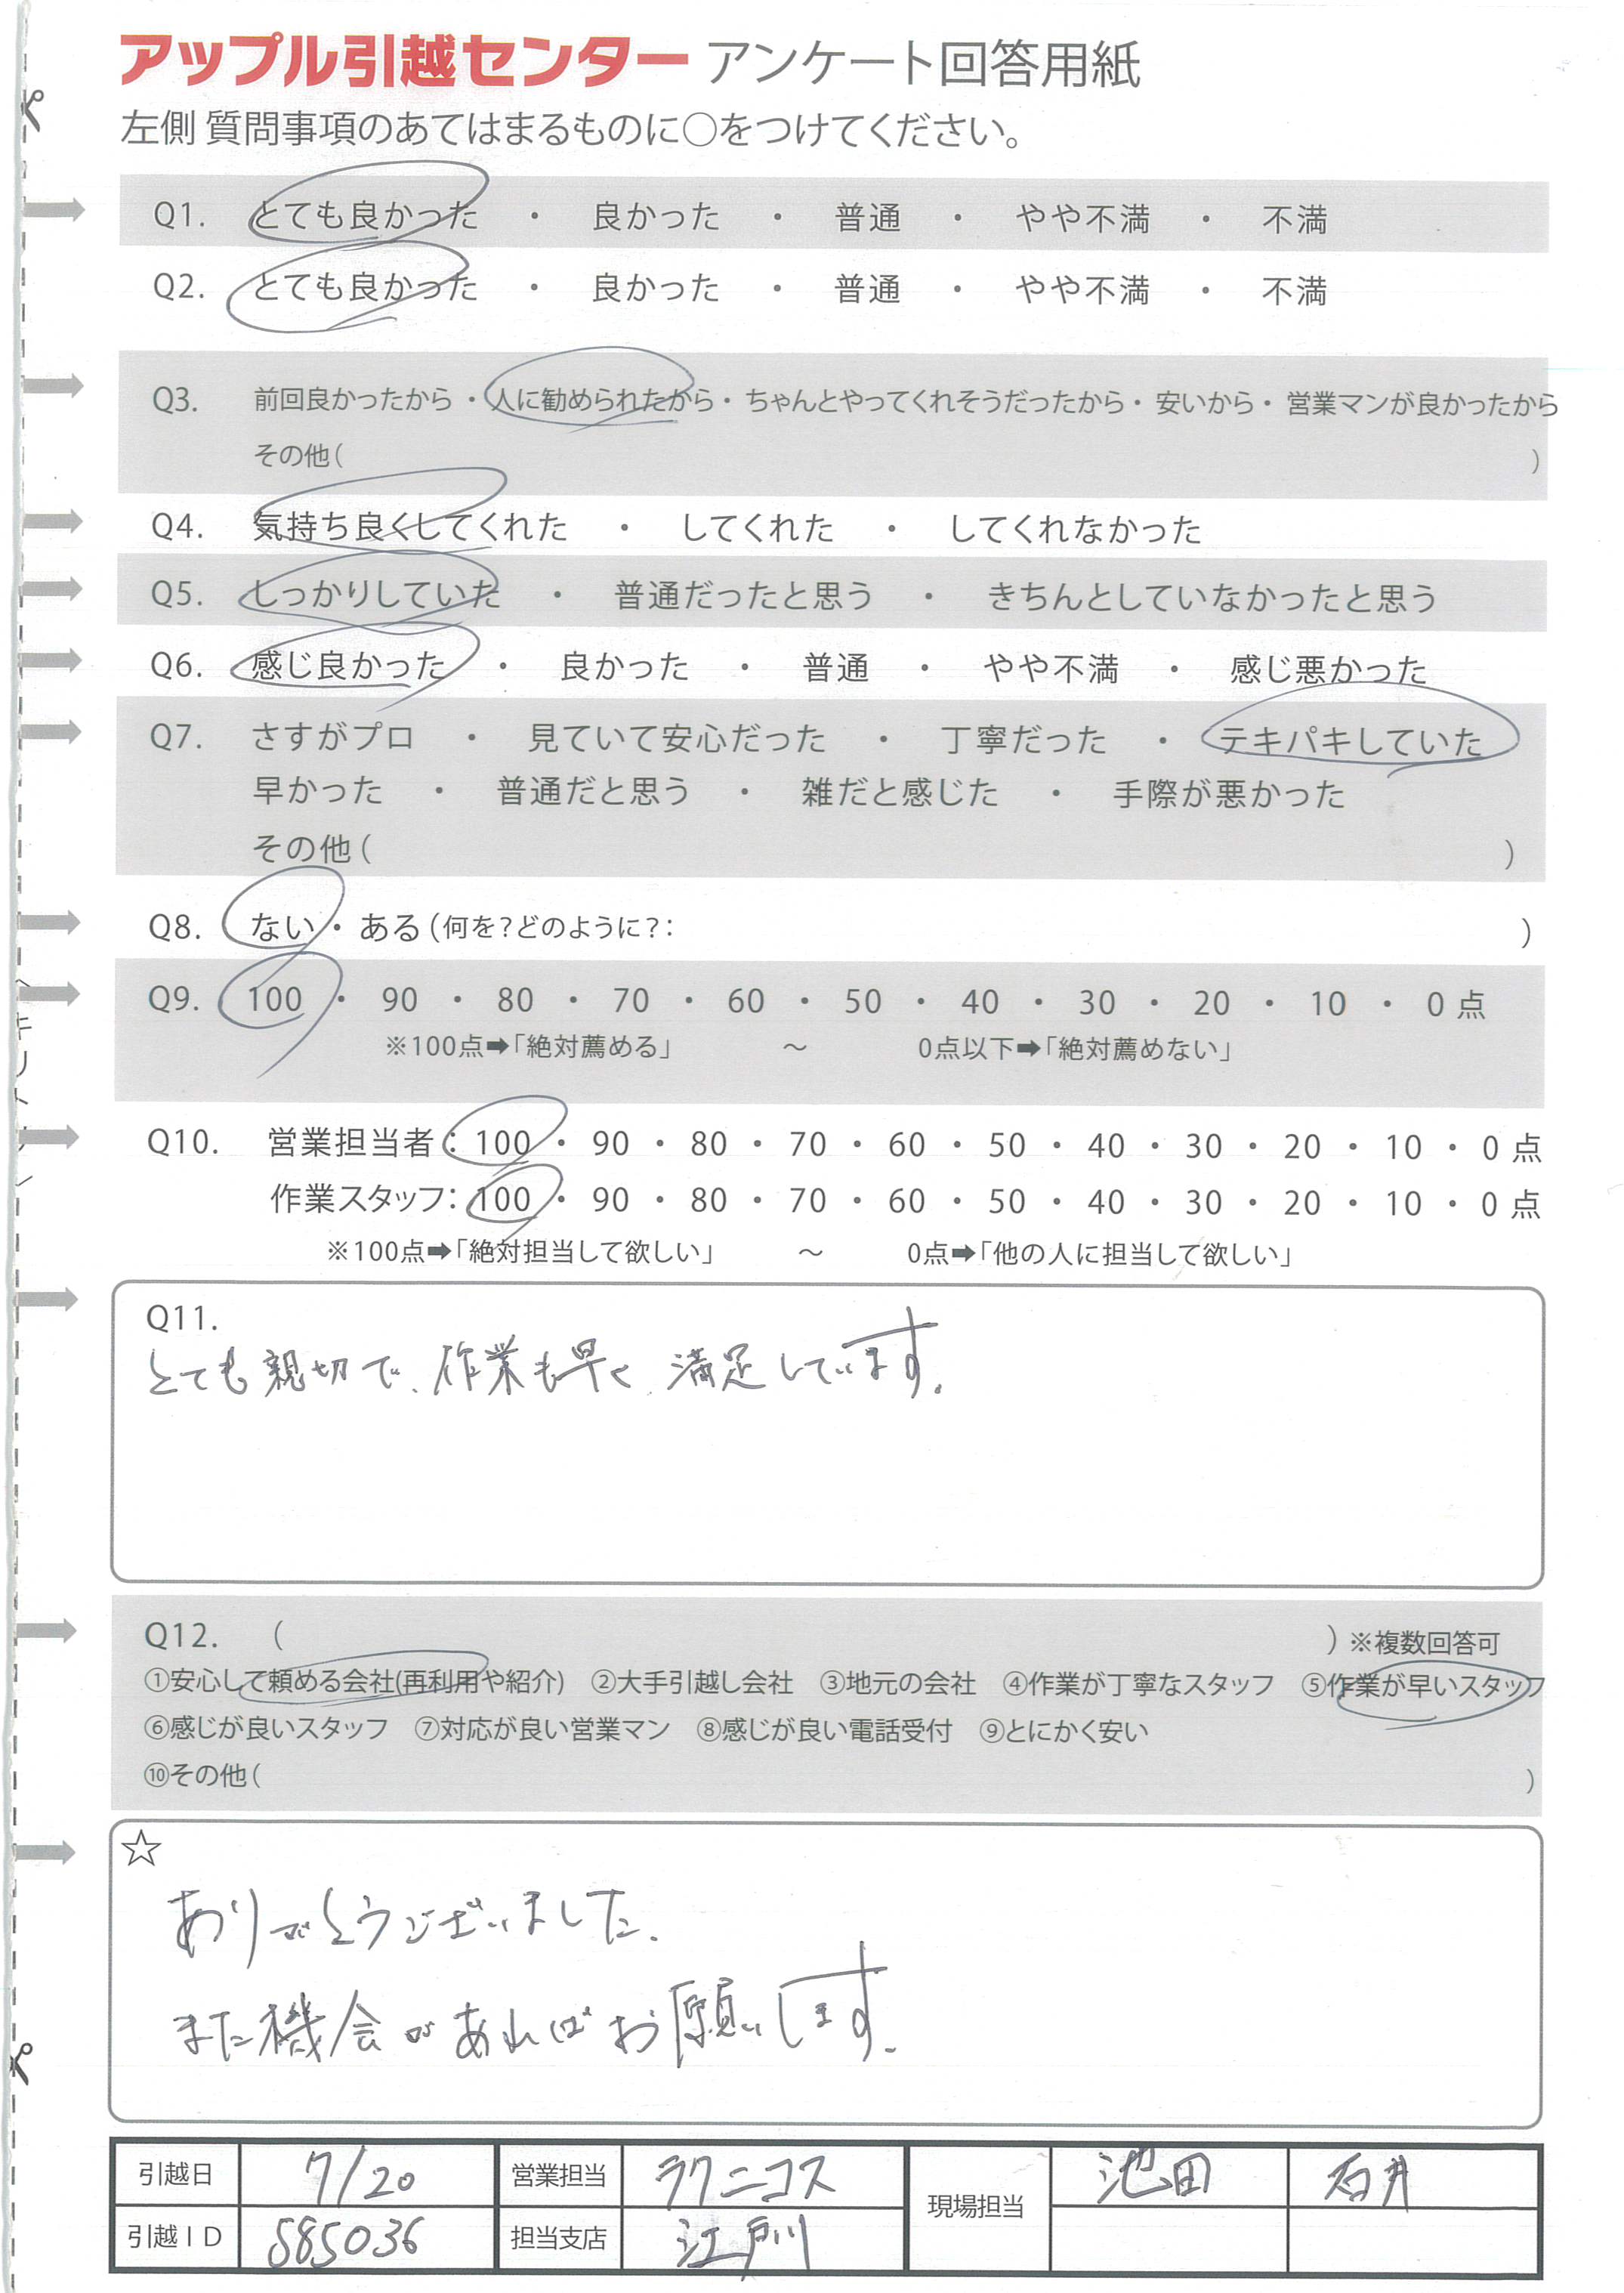 アップル引越センター アンケート回答用紙
左側 質問事項のあてはまるものに○をつけてください。
Q1. とても良かった ・ 良かった ・ 普通 ・ やや不満 ・ 不満
Q2. とても良かった ・ 良かった ・ 普通 ・ やや不満 ・ 不満
Q3. 前回良かったから ・ 人に勧められたから ・ ちゃんとやってくれそうだったから ・ 安いから ・ 営業マンが良かったから
その他( )
Q4. 気持ち良くしてくれた ・ してくれた ・ してくれなかった
Q5. しっかりしていた ・ 普通だったと思う ・ きちんとしていなかったと思う
Q6. 感じ良かった ・ 良かった ・ 普通 ・ やや不満 ・ 感じ悪かった
Q7. さすがプロ ・ 見ていて安心だった ・ 丁寧だった ・ テキパキしていた
早かった ・ 普通だと思う ・ 雑だと感じた ・ 手際が悪かった
その他( )
Q8. ない ・ ある(何を?どのように?: )
Q9. 100 ・ 90 ・ 80 ・ 70 ・ 60 ・ 50 ・ 40 ・ 30 ・ 20 ・ 10 ・ 0 点
※100点➡「絶対薦める」 ～ 0点以下➡「絶対薦めない」
Q10. 営業担当者:100 ・ 90 ・ 80 ・ 70 ・ 60 ・ 50 ・ 40 ・ 30 ・ 20 ・ 10 ・ 0 点
作業スタッフ:100 ・ 90 ・ 80 ・ 70 ・ 60 ・ 50 ・ 40 ・ 30 ・ 20 ・ 10 ・ 0 点
※100点➡「絶対担当して欲しい」 ～ 0点➡「他の人に担当して欲しい」
Q11.
とても親切で、作業も早く、満足しています。
Q12. ( ) ※複数回答可
①安心して頼める会社(再利用や紹介) ②大手引越し会社 ③地元の会社 ④作業が丁寧なスタッフ ⑤作業が早いスタッフ
⑥感じが良いスタッフ ⑦対応が良い営業マン ⑧感じが良い電話受付 ⑨とにかく安い
⑩その他( )
☆
ありがとうございました。
また機会があればお願いします。
引越日 7/20 営業担当 ラクニコス 現場担当 池田 石井
引越ID 585036 担当支店 江戸川